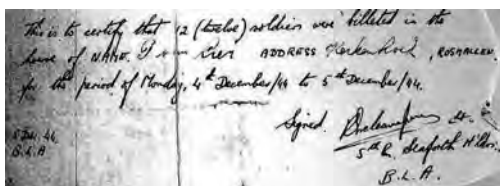 This is to certify that 12 (twelve) soldiers were billeted in the
house of NAME. ADDRESS Kerkenhoek, ROSMALEN.
for the period of Monday, 4th December/44 to 5th December/44.
Signed. Lt.
5th Bn. Seaforth H'ldrs.
5 Dec. 44
B.L.A.
B.L.A.